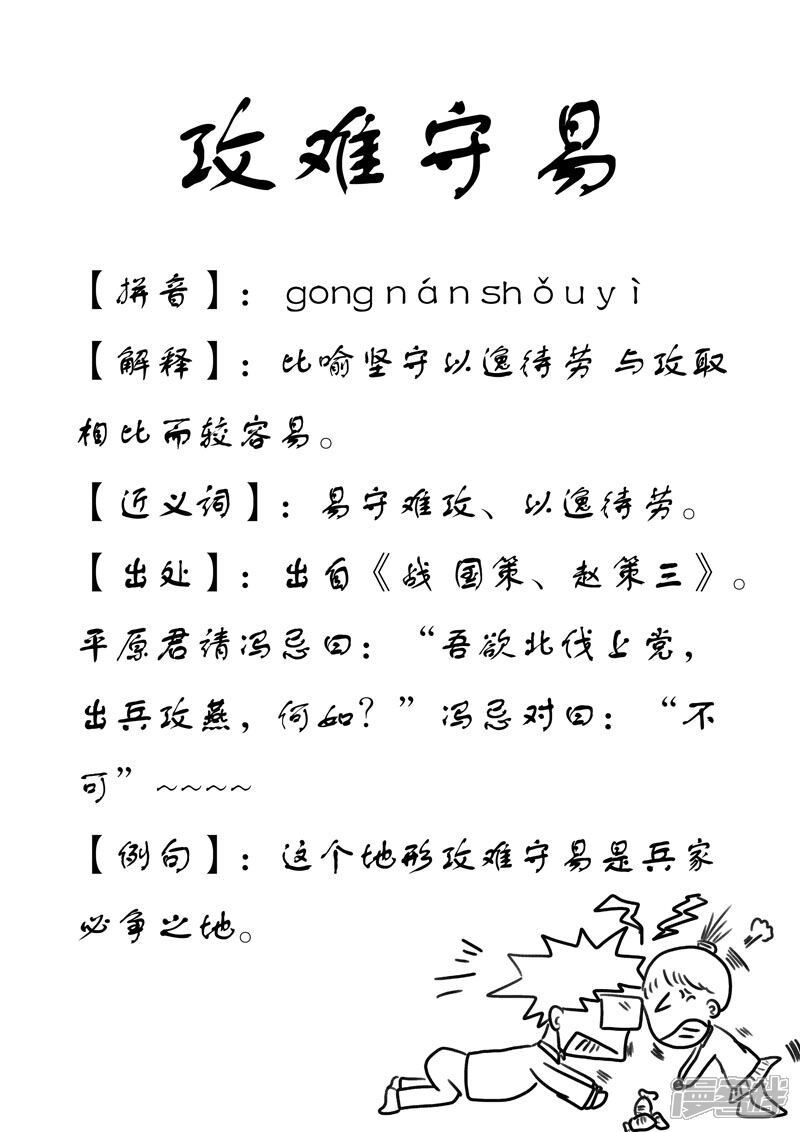 攻难守易
【拼音】：gong nán shǒu yì
【解释】：比喻坚守以逸待劳 与攻取
相比而较容易。
【近义词】：易守难攻、以逸待劳。
【出处】：出自《战国策、赵策三》。
平原君请冯忌曰：“吾欲北伐上党，
出兵攻燕，何如？”冯忌对曰：“不
可”~~~~
【例句】：这个地形攻难守易是兵家
必争之地。
漫客栈